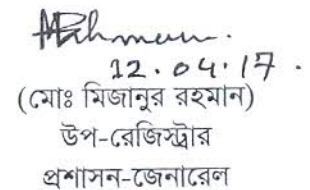 12.04.17.
(মোঃ মিজানুর রহমান)
উপ-রেজিস্ট্রার
প্রশাসন-জেনারেল